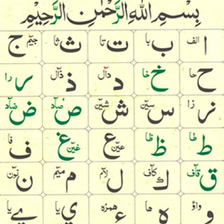 بِسْمِ اللهِ الرَّحْمٰنِ الرَّحِيْمِ
ا الف ب با ت تا ث ثا ج جيم
ح حا خ خا د دال ذ ذال ر را
ز زا س سين ش شين ص صاد ض ضاد
ط طا ظ ظا ع عين غ غين ف فا
ق قاف ك كاف ل لام م ميم ن نون
و واؤ ه ها ء همزه ي يا ے يا